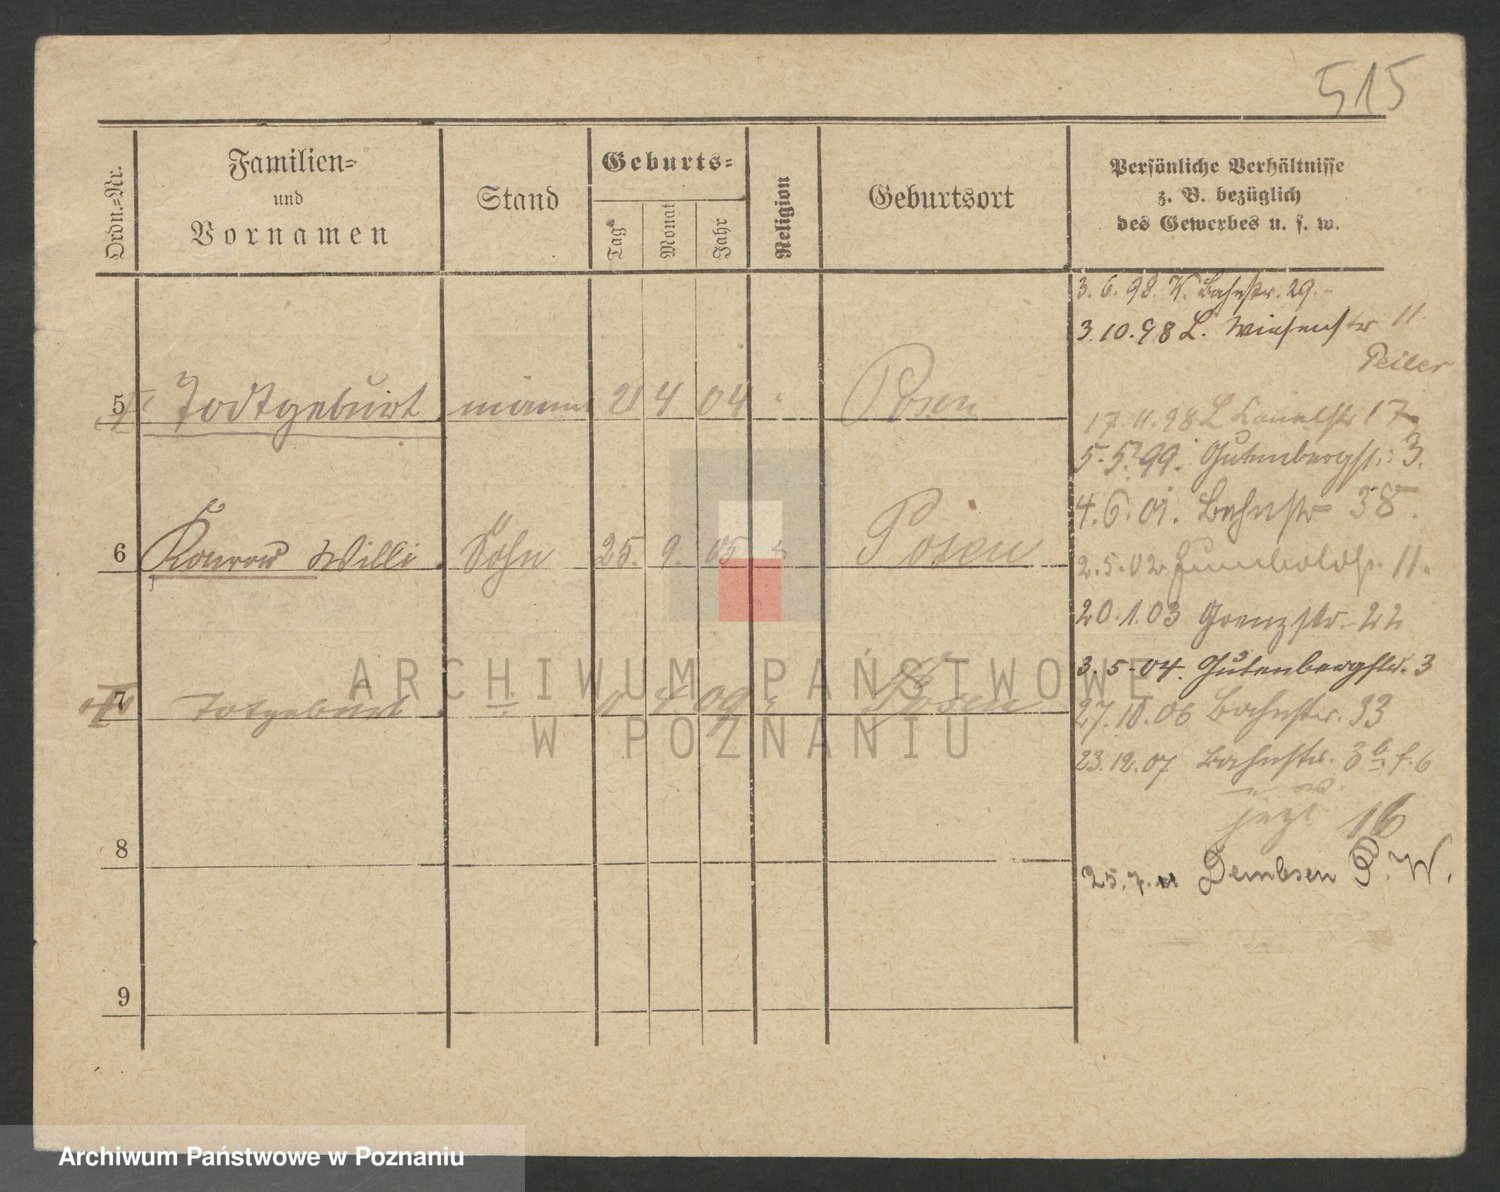 515
Ordn.-Nr.
Familien-
und
Vornamen
Stand
Geburts-
Tag
Monat
Jahr
Religion
Geburtsort
Persönliche Verhältnisse
z. B. bezüglich
des Gewerbes u. s. w.
3.6.98. W. Bahnstr. 29.-
3.10.98 L. Wiesenstr 11.
Peiler
5 Todtgeburt 21 4 04 Posen
17.11.98 L 17
5.5.99. Gutenbergst. 3.
4.6.01. Bahnstr 38.
6 Konrad Willi Sohn 25. 9. 05 Posen
2.5.02 Humboldst. 11.
20.1.03 Grenzstr. 22
3.5.04. Gutenbergstr. 3
7 Totgeburt 4 09 Posen
27.10.06 Bahnstr. 33
23.12.07 Bahnstr. 3
jezt 16
8
25.7.11 Dembsen P. W.
9
ARCHIWUM PAŃSTWOWE
W POZNANIU
Archiwum Państwowe w Poznaniu